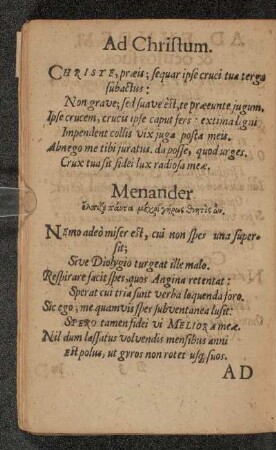 Ad Christum.
CHRISTE, præis; sequar ipse cruci tua terga
subactus:
Non grave, sed suave est, te præeunte jugum.
Ipse crucem, cruci ipse caput fers: extima ligni
Impendent collis vix juga posta meis.
Abnego me tibi juratus. da posse, quod urges.
Crux tua sit fidei lux radiosa meæ.
Menander
πάντα μέχρι γήρως θνητὸς ὤν.
NEmo adeò miser est, cui non spes una super-
sit;
Sive Diolygio turgeat ille malo.
Respirare facit spes, quos Angina retentat:
Sperat cui tria sunt verba loquenda foro.
Sic ego; me quamvis spes subventanea lusit:
SPERO tamen fidei vi MELIORA meæ.
Nil dum lassatus volvendis mensibus anni
Est polus, ut gyros non rotet usq; suos.
AD